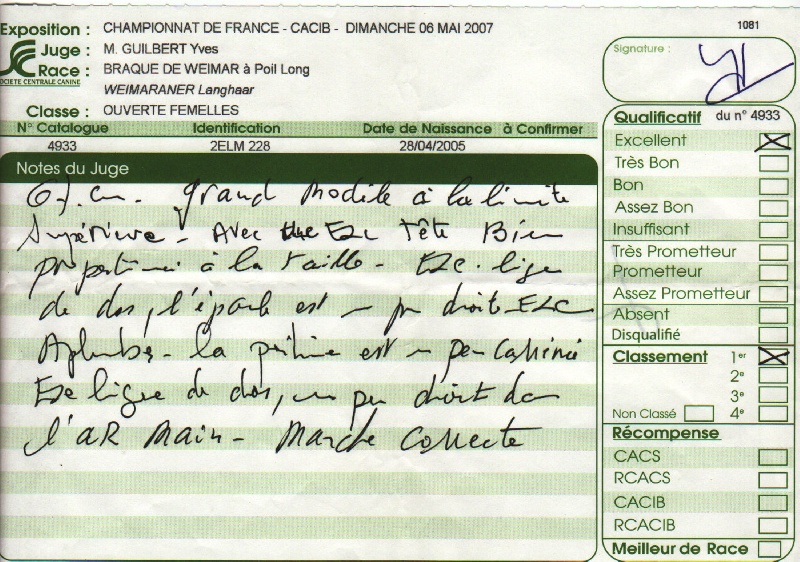 Exposition : CHAMPIONNAT DE FRANCE - CACIB - DIMANCHE 06 MAI 2007
1081
Juge : M. GUILBERT Yves
Race : BRAQUE DE WEIMAR à Poil Long
SOCIETE CENTRALE CANINE
WEIMARANER Langhaar
Classe : OUVERTE FEMELLES
N° Catalogue Identification Date de Naissance à Confirmer
4933 2ELM 228 28/04/2005
Notes du Juge
grand modèle à la limite
Supérieure - Avec Exc Tête Bien
proportionné à la taille - Exc. ligne
de dos, l'épaule est un peu droite - Exc
Aplombs - la poitrine est un peu
Exc ligne de dos, un peu droit de
l'AR main - Marche correcte
Signature :
Qualificatif du n° 4933
Excellent
Très Bon
Bon
Assez Bon
Insuffisant
Très Prometteur
Prometteur
Assez Prometteur
Absent
Disqualifié
Classement 1er
2e
3e
Non Classé 4e
Récompense
CACS
RCACS
CACIB
RCACIB
Meilleur de Race